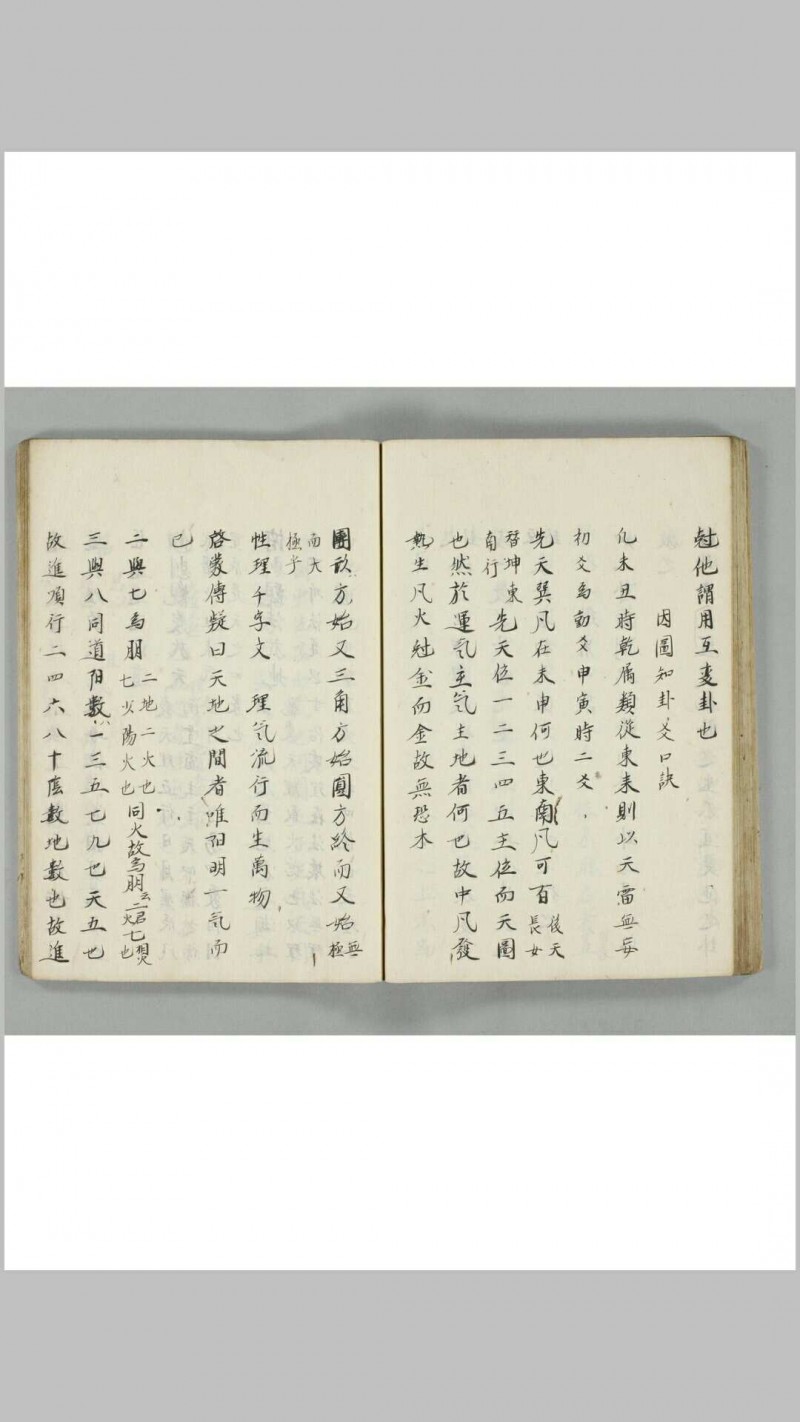 尅他謂用互変卦也
因圖知卦爻口訣
凢未丑時乾屬類從東来則以天雷無妄
初爻為動爻申寅時二爻
先天巽凡在未申何也東南凡可百後天長女
替坤東自行先天位一二三四五主位而天圖
也然於運気主気土地者何也故中凡發
熱生凡火尅金而金故無恐木
圓故方始又三角方始圓方終而又始無極
而大極乎
性理千字文 理気流行而生萬物
啓蒙傳疑曰天地之間者唯陽明一気而
已
二與七為朋二地二火也七少陽火也同火故為朋云二君火七想火也
三與八同道阳数一三五七九也天五也
故進順行二四六八十陰数地数也故進